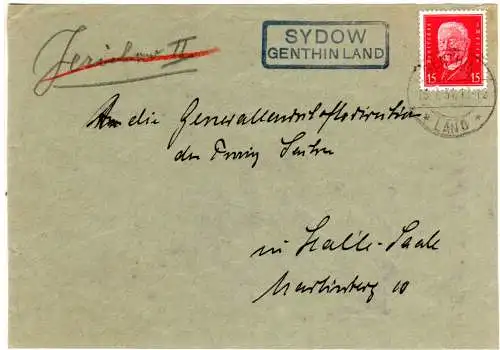 SYDOW
GENTHIN LAND
Jerichow II
15 15
* LAND *
An die Generallandschaftsdirektion
der Prov.
in Halle-Saale
Martinsberg 10